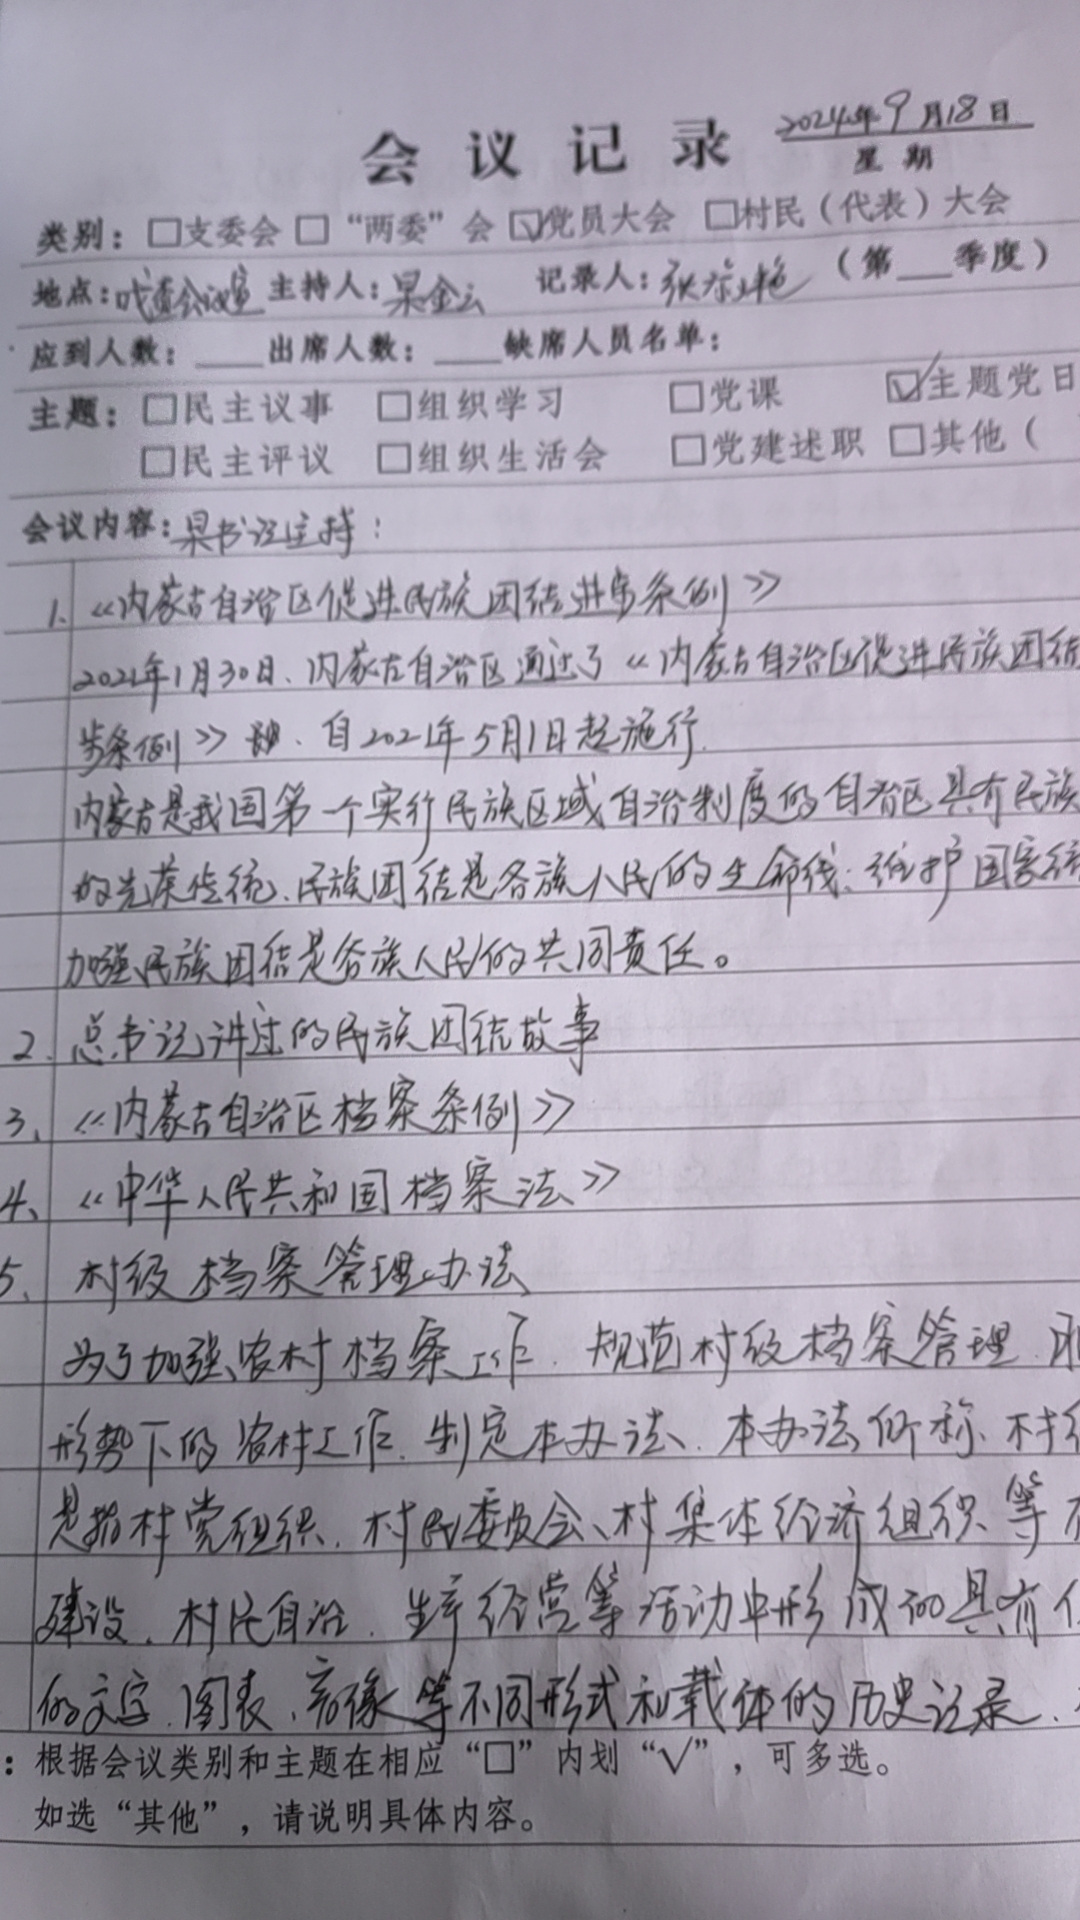 会议记录 2024年9月18日
星期
类别：□支委会 □“两委”会 ☑党员大会 □村民（代表）大会
地点：村委会议室 主持人：果金云 记录人：张 艳 （第___季度）
应到人数：____出席人数：____缺席人员名单：
主题：□民主议事 □组织学习 □党课 ☑主题党日
□民主评议 □组织生活会 □党建述职 □其他（
会议内容：果书记主持：
1.《内蒙古自治区促进民族团结进步条例》
2021年1月30日、内蒙古自治区通过了《内蒙古自治区促进民族团结
步条例》、自2021年5月1日起施行.
内蒙古是我国第一个实行民族区域自治制度的自治区具有民族
的光荣传统、民族团结是各族人民的生命线：维护国家统
加强民族团结是各族人民的共同责任。
2.总书记讲过的民族团结故事
3、《内蒙古自治区档案条例》
4、《中华人民共和国档案法》
5、村级档案管理办法
为了加强农村档案工作、规范村级档案管理、
形势下的农村工作、制定本办法、本办法所称、村级
是指村党组织、村民委员会、村集体经济组织等
建设、村民自治、生产经营等活动中形成的具有
的文字、图表、音像等不同形式和载体的历史记录、
：根据会议类别和主题在相应“□”内划“√”，可多选。
如选“其他”，请说明具体内容。